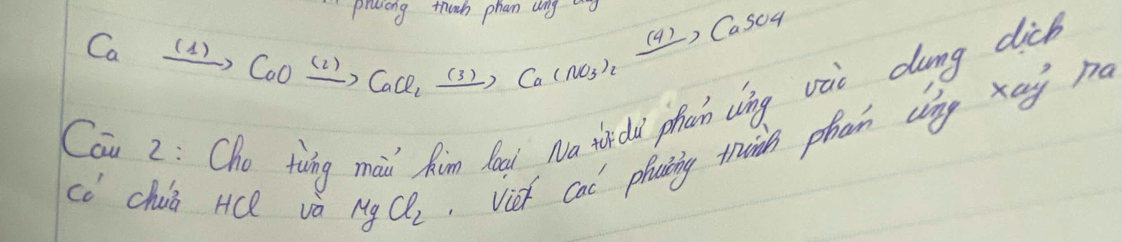 phương trình phản ứng
Ca (1)→ CaO (2)→ CaCl₂ (3)→ Ca(NO₃)₂ (4)→ CaSO4
Câu 2: Cho từng mẩu kim loại Na tới dư phản ứng vào dung dịch
có chứa HCl và MgCl₂. Viết các phương trình phản ứng xảy ra